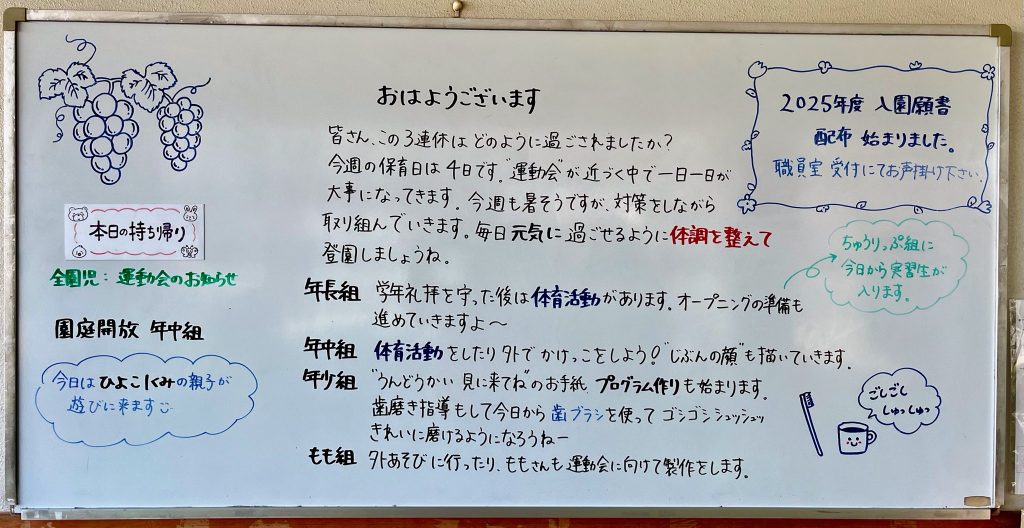 おはようございます
皆さん、この3連休はどのように過ごされましたか?
今週の保育日は4日です。"運動会"が近づく中で一日一日が
大事になってきます。今週も暑そうですが、対策をしながら
取り組んでいきます。毎日元気に過ごせるように体調を整えて
登園しましょうね。
年長組 学年礼拝を守った後は体育活動があります。オープニングの準備も
進めていきますよ～
年中組 体育活動をしたり外でかけっこをしよう!"じぶんの顔"も描いていきます。
年少組 "うんどうかい 見に来てね"のお手紙、プログラム作りも始まります。
歯磨き指導もして今日から歯ブラシを使ってゴシゴシシュッシュッ
きれいに磨けるようになろうねー
もも組 外あそびに行ったり、ももさんも運動会に向けて製作をします。
本日の持ち帰り
全園児:運動会のお知らせ
園庭開放 年中組
今日はひよこぐみの親子が
遊びに来ます
2025年度 入園願書
配布 始まりました。
職員室 受付にてお声掛け下さい。
ちゅうりっぷ組に
今日から実習生が
入ります。
ごしごし
しゅっしゅっ